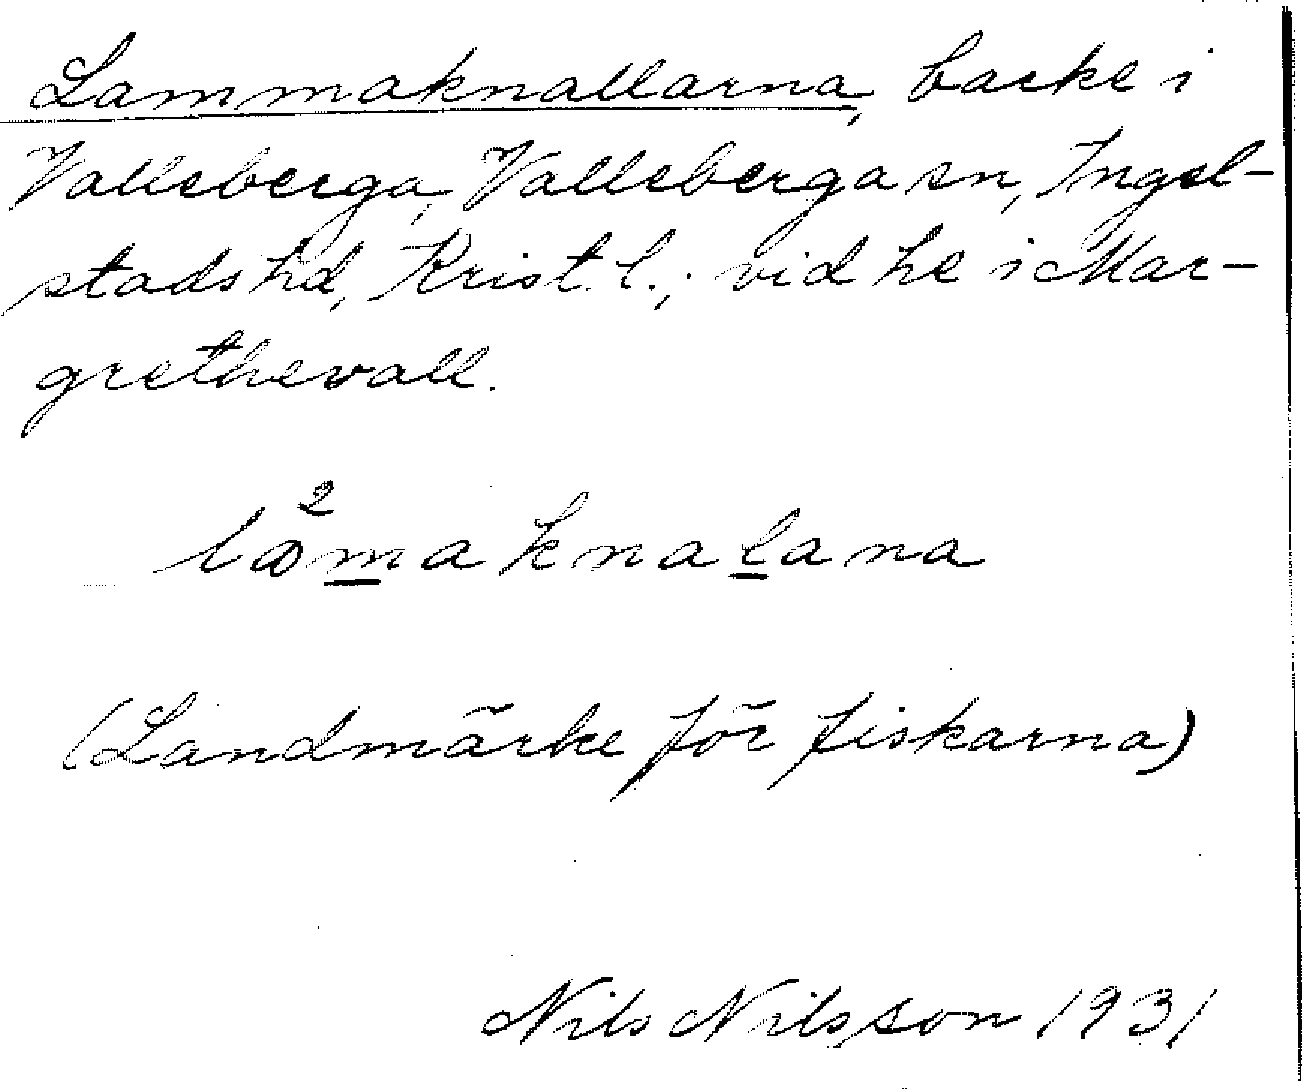 Lammaknallarna, backe i
Valleberga, Valleberga sn, Ingel-
stads hd, Krist. l.; vid he i Mar-
grethevall.
(Landmärke för fiskarna)
Nils Nilsson 1931